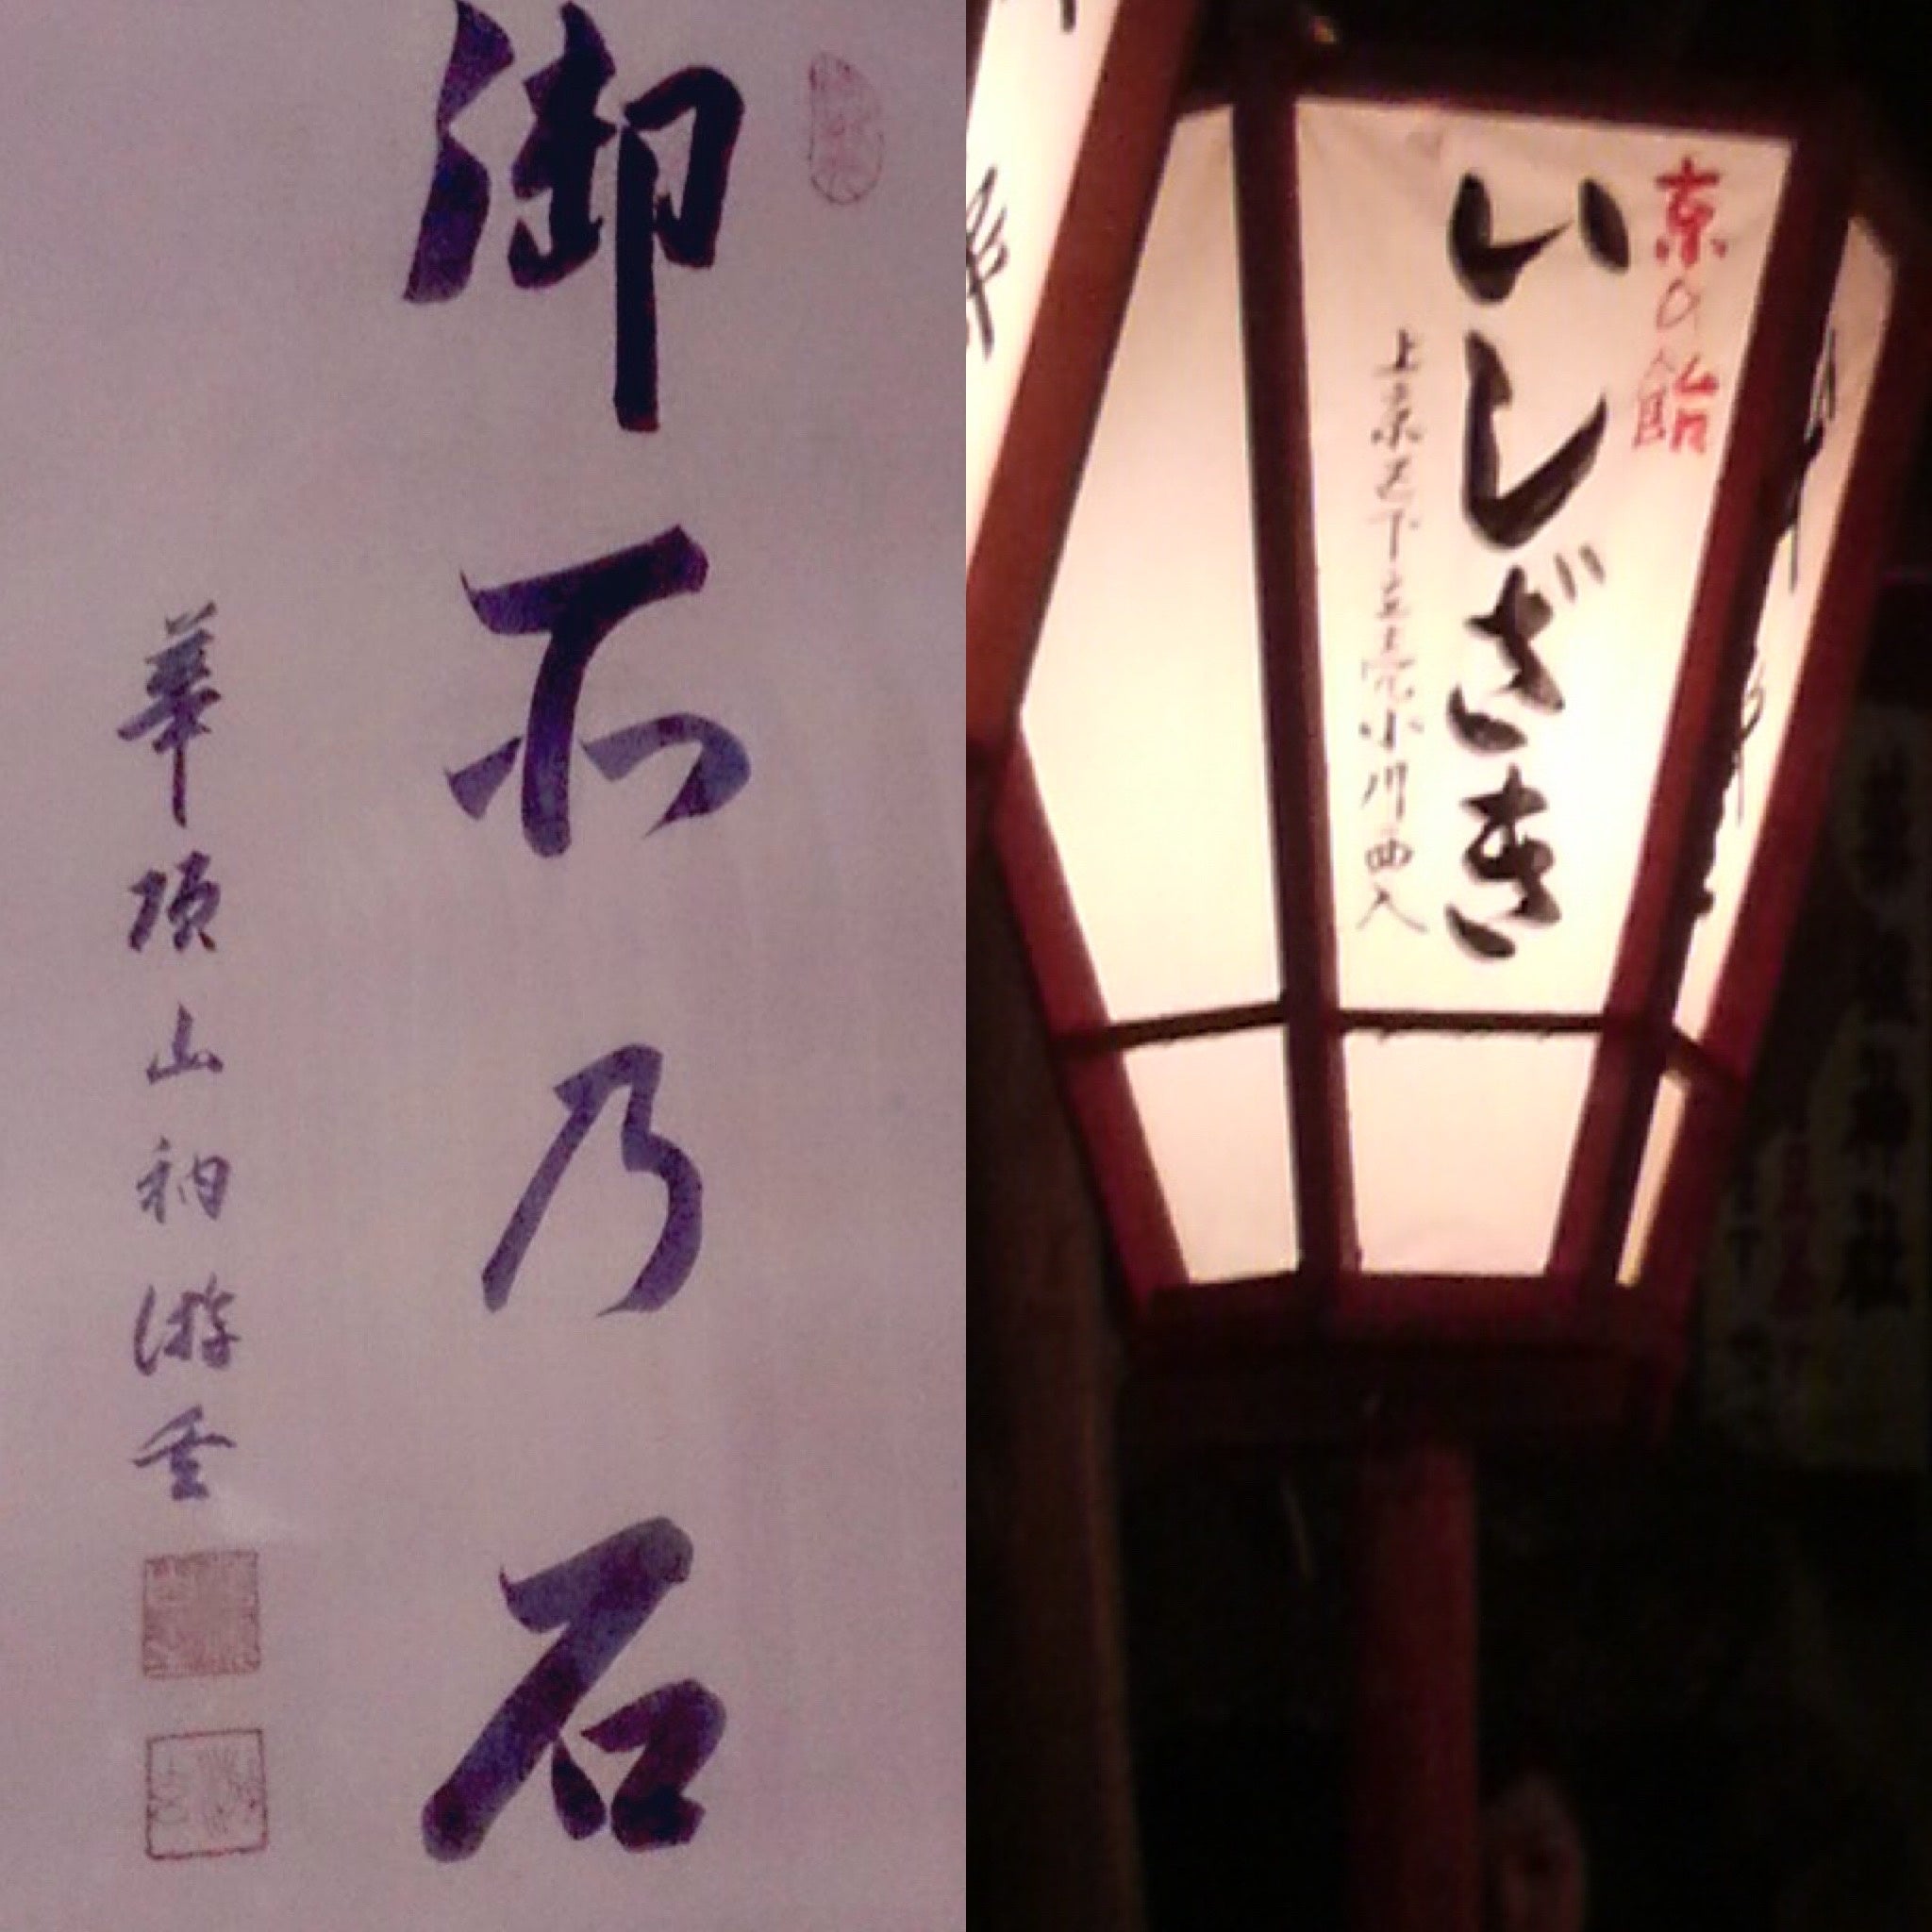 御乃石
華頂山衲游雲
京の飴
いしざき
上京区下立売小川西入